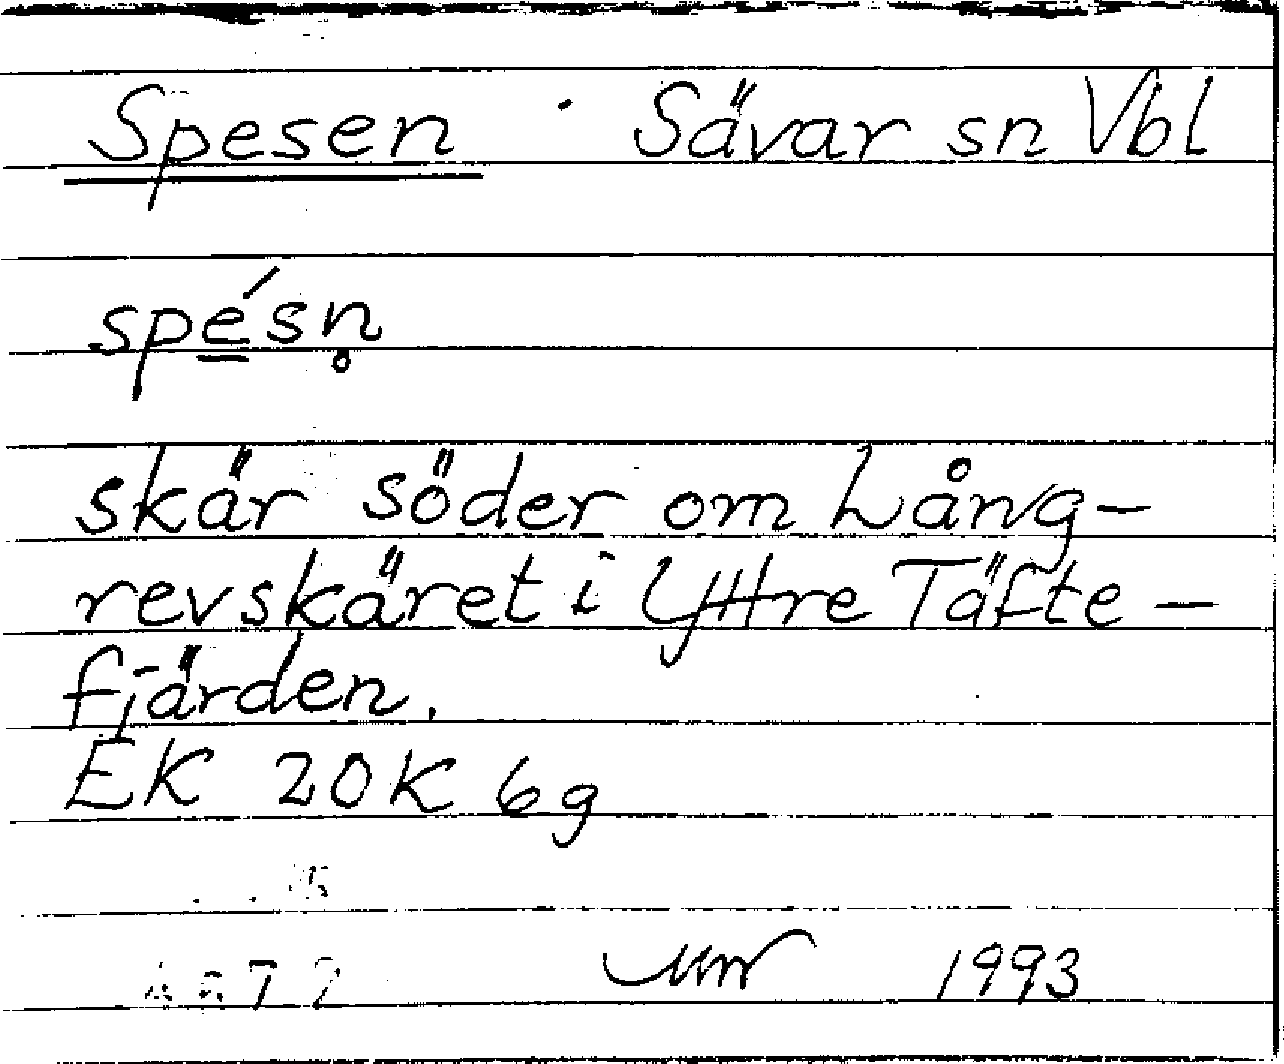 Spesen Sävar sn Vbl
spé̳sn̥
skär söder om Lång-
revskäret i Yttre Täfte-
fjärden.
EK 20K 6g
1993